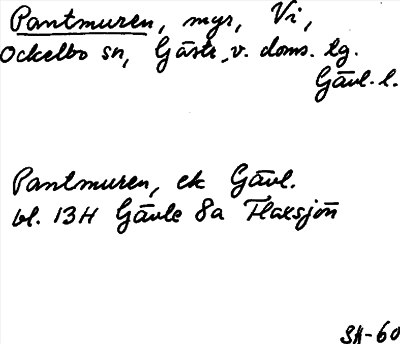 Pantmuren, myr, Vi,
Ockelbo sn, Gästr. v. doms. tg.
Gävl. l.
Pantmuren, ek Gävl.
bl. 13H Gävle 8a Flaxsjön
SH-60